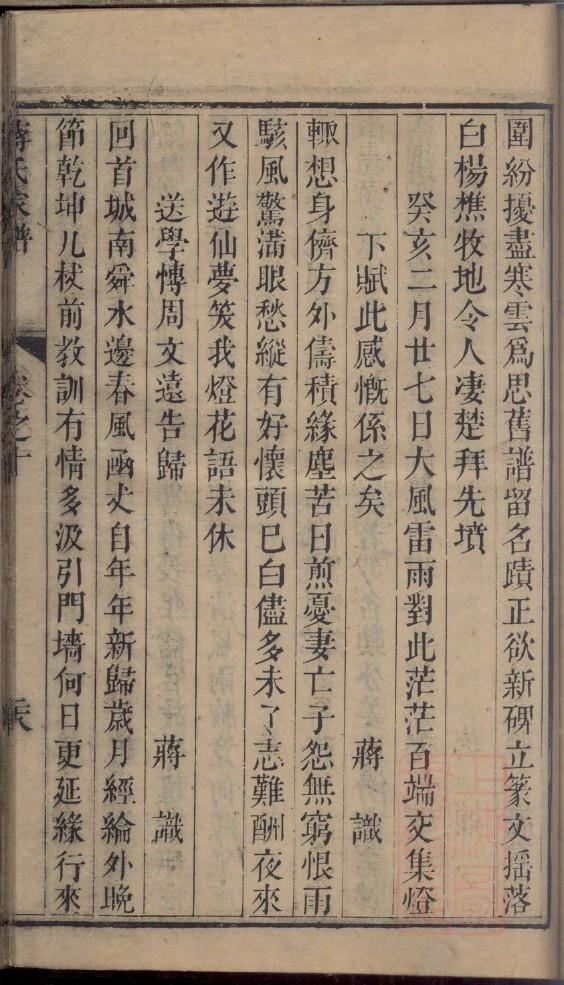 圍紛擾盡寒雲爲思舊譜留名蹟正欲新碑立篆文揺落
白楊樵牧地令人凄楚拜先墳
癸亥二月廿七日大風雷雨對此茫茫百端交集燈
下賦此感慨係之矣　蔣識
輙想身儕方外儔積緣塵苦日煎憂妻亡子怨無窮恨雨
駭風驚滿眼愁縱有好懷頭已白儘多未了志難酬夜來
又作遊仙夢笑我燈花語未休
送學博周文遠告歸　蔣識
回首城南舜水邊春風函丈自年年新歸歲月經綸外晩
節乾坤几杖前教訓有情多汲引門墻何日更延緣行來
蔣氏家譜　卷之十